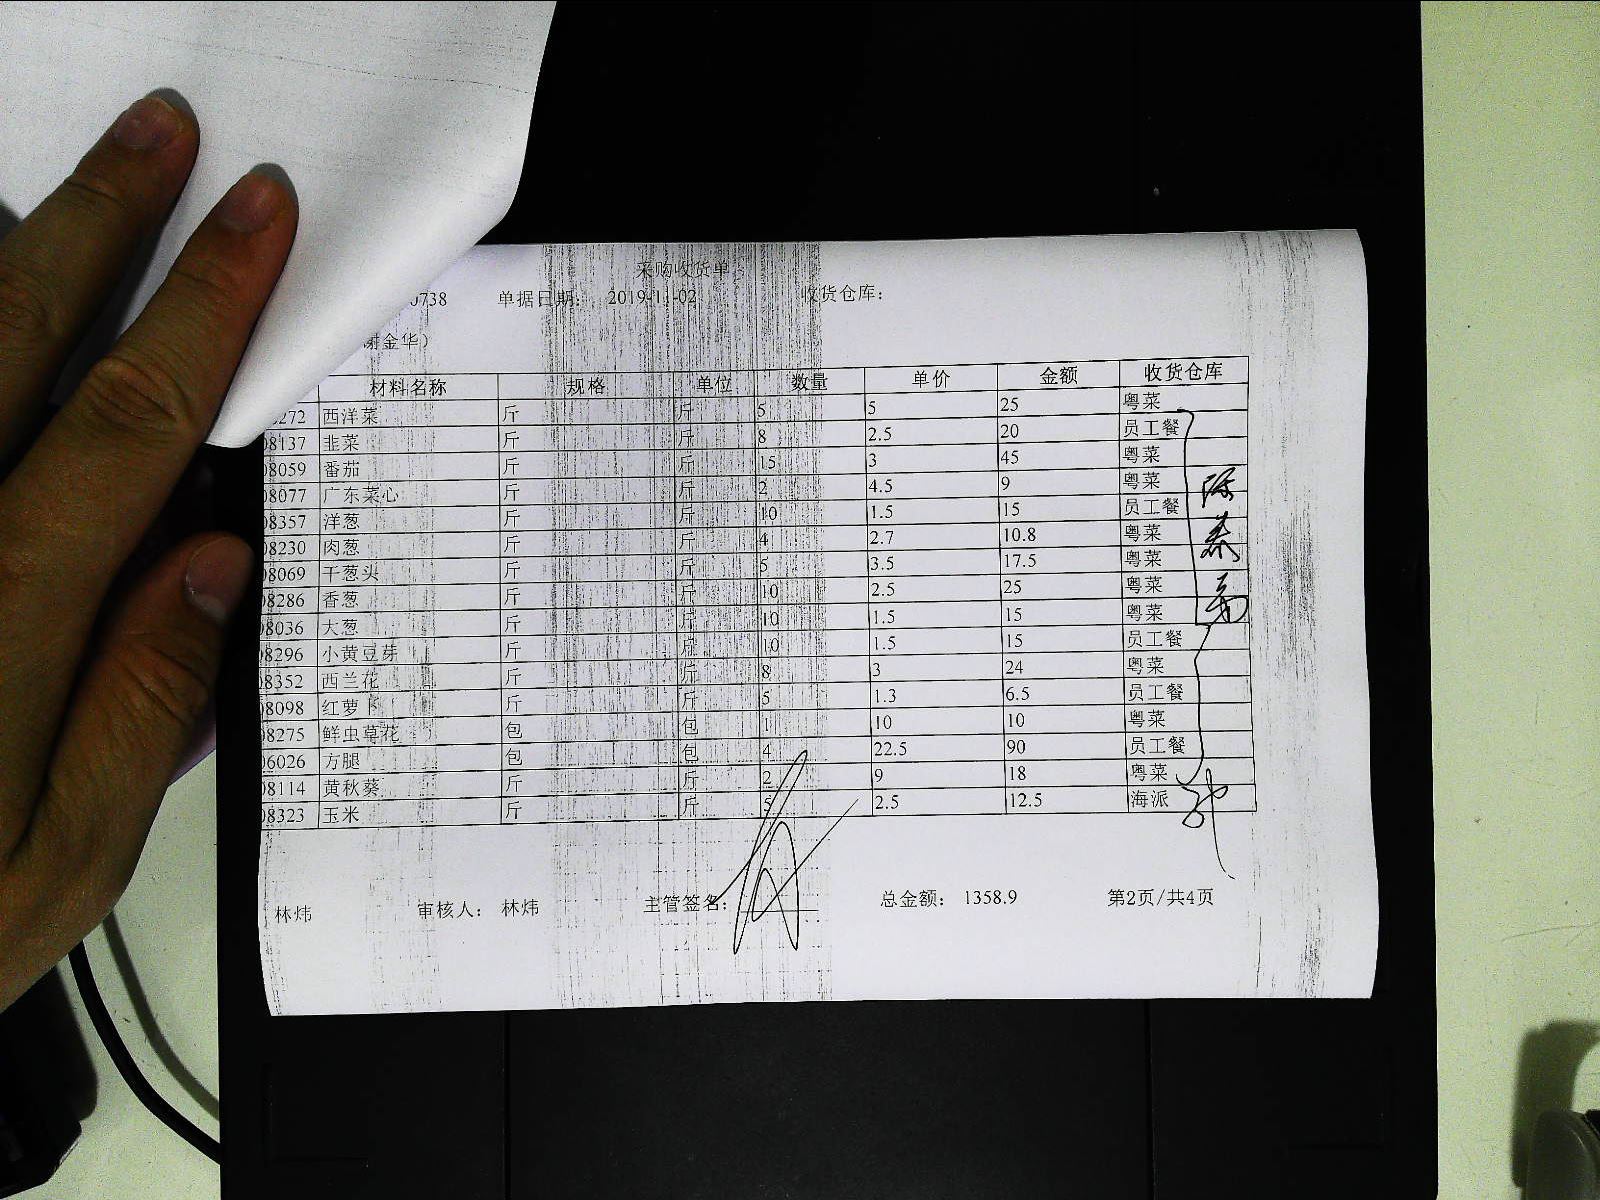 采购收货单
0738 单据日期： 2019-11-02 收货仓库：
谢金华）
材料名称 规格 单位 数量 单价 金额 收货仓库
272 西洋菜 斤 斤 5 5 25 粤菜
08137 韭菜 斤 斤 8 2.5 20 员工餐
08059 番茄 斤 斤 15 3 45 粤菜
08077 广东菜心 斤 斤 2 4.5 9 粤菜
08357 洋葱 斤 斤 10 1.5 15 员工餐
08230 肉葱 斤 斤 4 2.7 10.8 粤菜
08069 干葱头 斤 斤 5 3.5 17.5 粤菜
08286 香葱 斤 斤 10 2.5 25 粤菜
08036 大葱 斤 斤 10 1.5 15 粤菜
08296 小黄豆芽 斤 斤 10 1.5 15 员工餐
08352 西兰花 斤 斤 8 3 24 粤菜
08098 红萝卜 斤 斤 5 1.3 6.5 员工餐
08275 鲜虫草花 包 包 1 10 10 粤菜
06026 方腿 包 包 4 22.5 90 员工餐
08114 黄秋葵 斤 斤 2 9 18 粤菜
08323 玉米 斤 斤 5 2.5 12.5 海派
林炜 审核人： 林炜 主管签名： 总金额： 1358.9 第2页/共4页